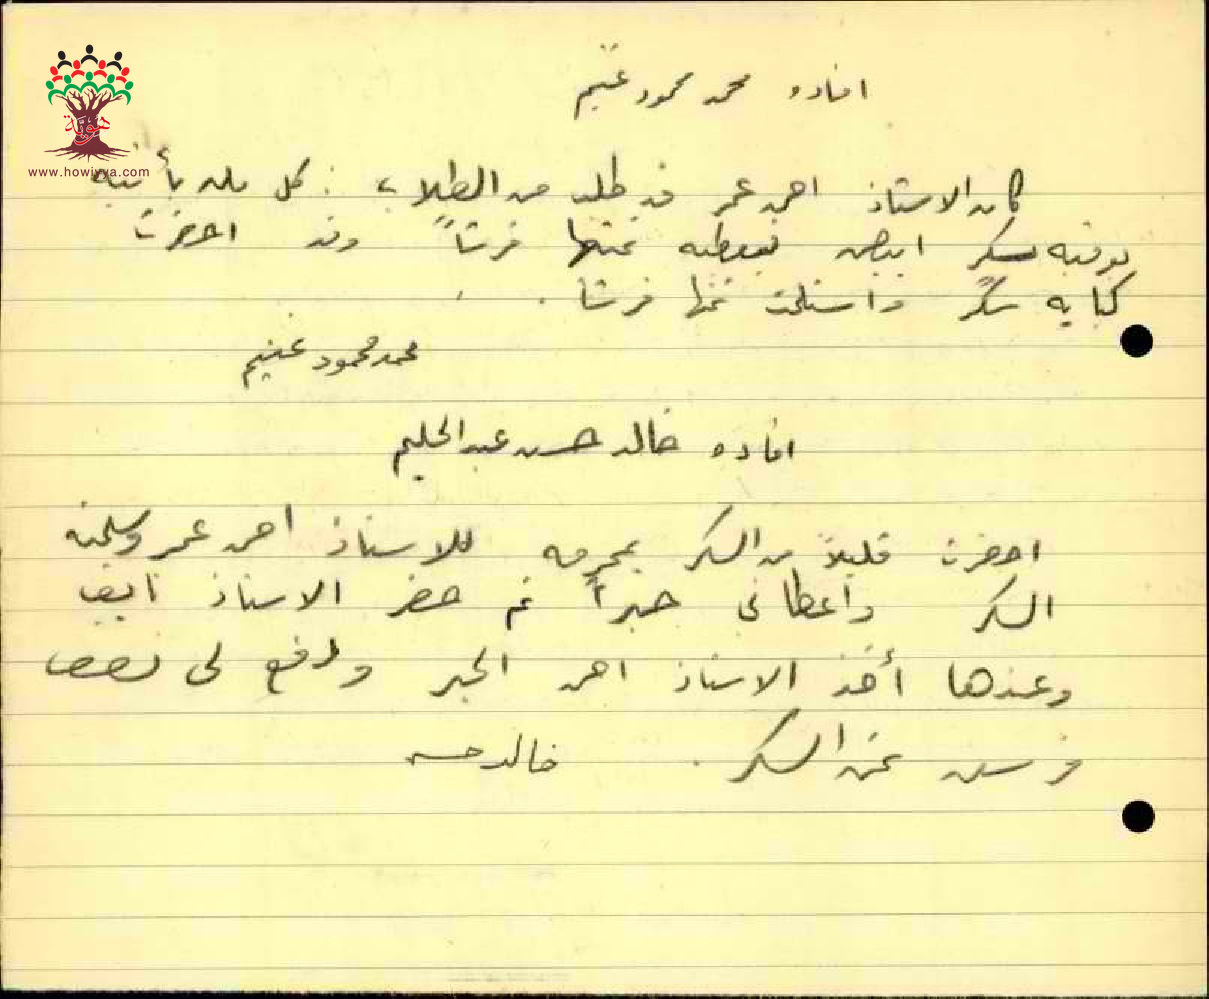 هوية
www.howiyya.com
افاده محمد محمود غنيم
كان الاستاذ احمد عمر قد طلب من الطلاب : كل من يأتيه
بوقية سكر ابيض فيعطيه ثمنها قرشاً وقد احضرت
كباية سكر واستلمت ثمنها قرشا .
محمد محمود غنيم
افاده خالد حسن عبد الحليم
احضرت قليلا من السكر بمحرمه للاستاذ احمد عمر وسلمته
السكر واعطاني حبراً ثم حضر الاستاذ نايف
وعندها أخذ الاستاذ احمد الحبر ودفع لي نصف
قرش ثمن السكر . خالد حسن